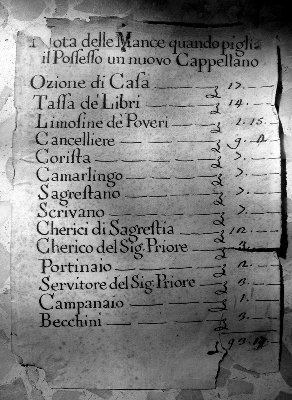 Nota delle Mance quando piglia
il Possesso un nuovo Cappellano
Ozione di Casa 17.
Tassa de' Libri 14.
Limosine de' Poveri 1.15.
Cancelliere
Corista 7.
Camarlingo 7.
Sagrestano 7.
Scrivano 7.
Cherici di Sagrestia
Cherico del Sig: Priore
Portinaio
Servitore del Sig: Priore 3.
Campanaio 1.
Becchini 3.